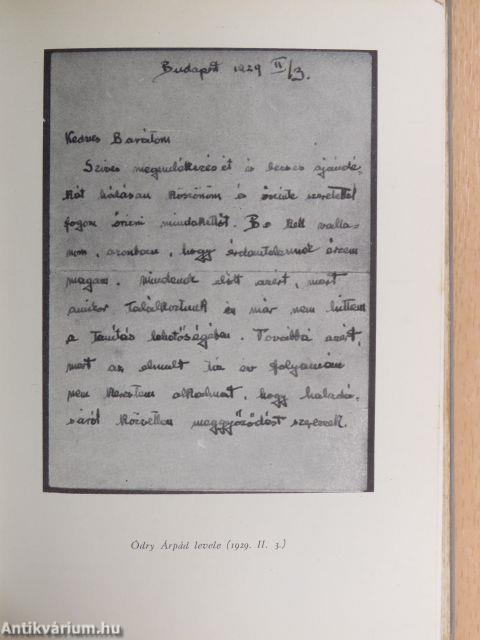 Budapest 1929 II/3.
Kedves Barátom
Szives megemlékezését és becses ajándé-
kát hálásan köszönöm és őszinte szeretettel
fogom őrizni mindakettőt. Be kell valla-
nom, azonban, hogy érdemtelennek érzem
magam, mindenek előtt azért, mert
amikor találkoztunk én már nem hittem
a tanitás lehetőségében. Továbbá azért,
mert az elmult tiz év folyamán
nem kerestem alkalmat, hogy haladá-
sáról közvetlen meggyőződést szerezzek.
Ódry Árpád levele (1929. II. 3.)
Antikvárium.hu